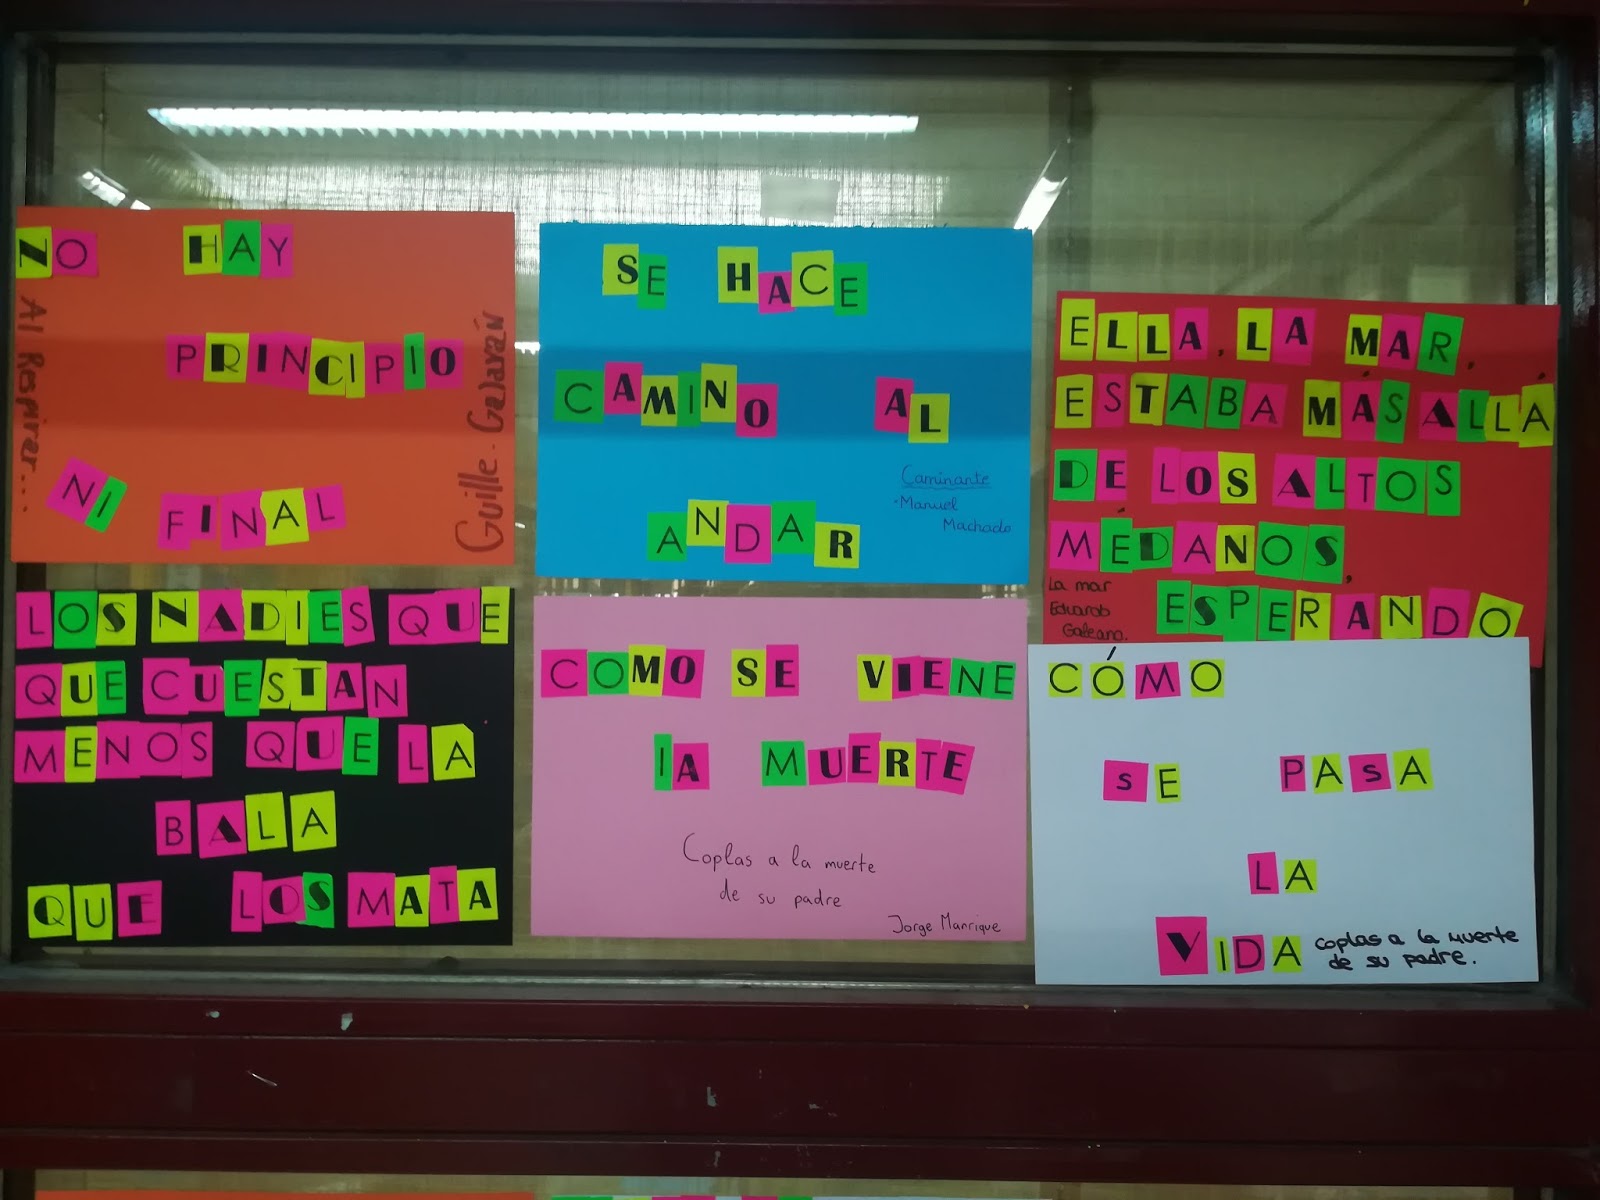 NO HAY
PRINCIPIO
NI FINAL
Al Respirar....
Guille Galaván
SE HACE
CAMINO AL
ANDAR
Caminante
-Manuel
Machado
ELLA, LA MAR,
ESTABA MÁS ALLÁ
DE LOS ALTOS
MÉDANOS,
ESPERANDO
La mar
Eduardo
Galeano.
LOS NADIES QUE
QUE CUESTAN
MENOS QUE LA
BALA
QUE LOS MATA
COMO SE VIENE
lA MUERTE
Coplas a la muerte
de su padre
Jorge Manrique
CÓMO
SE PASA
LA
VIDA
coplas a la muerte
de su padre.